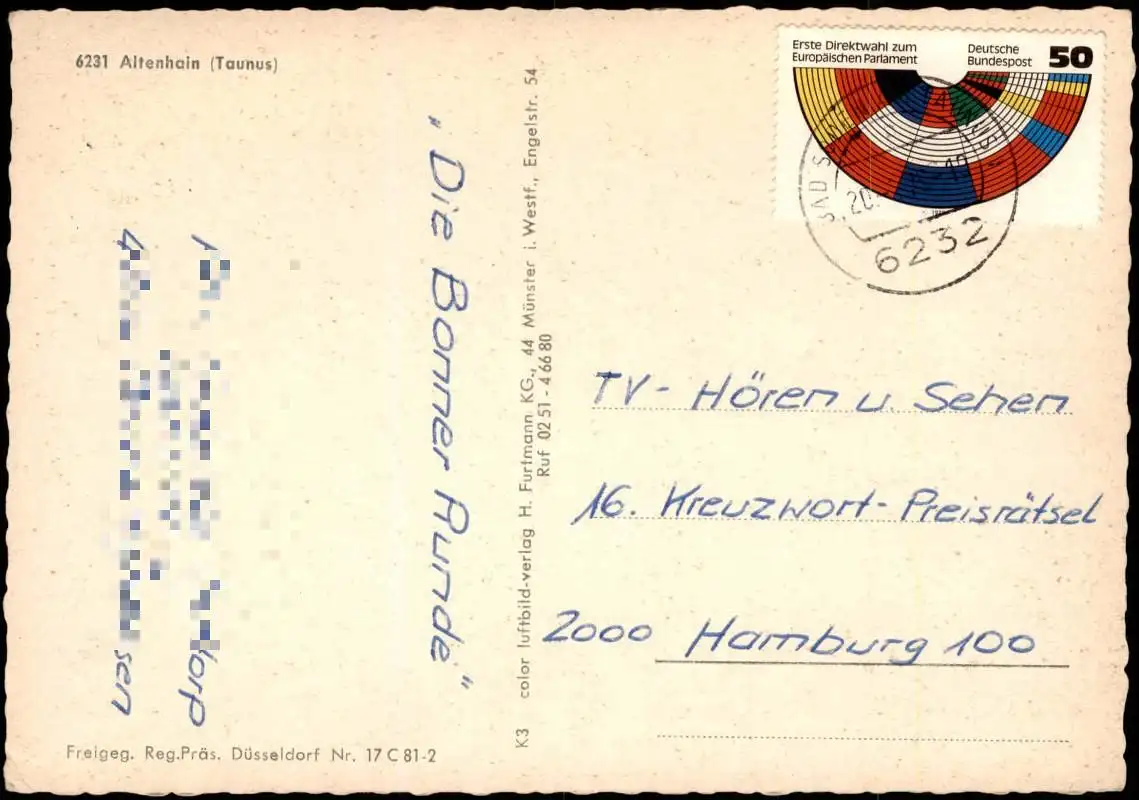 6231 Altenhain (Taunus)
Erste Direktwahl zum
Europäischen Parlament
Deutsche
Bundespost
50
6232
„Die Bonner Runde"
K3 color luftbild-verlag H. Furtmann KG., 44 Münster i. Westf., Engelstr. 54
Ruf 02 51 - 4 66 80
TV- Hören u. Sehen
16. Kreuzwort-Preisrätsel
2000 Hamburg 100
Freigeg. Reg.Präs. Düsseldorf Nr. 17 C 81-2